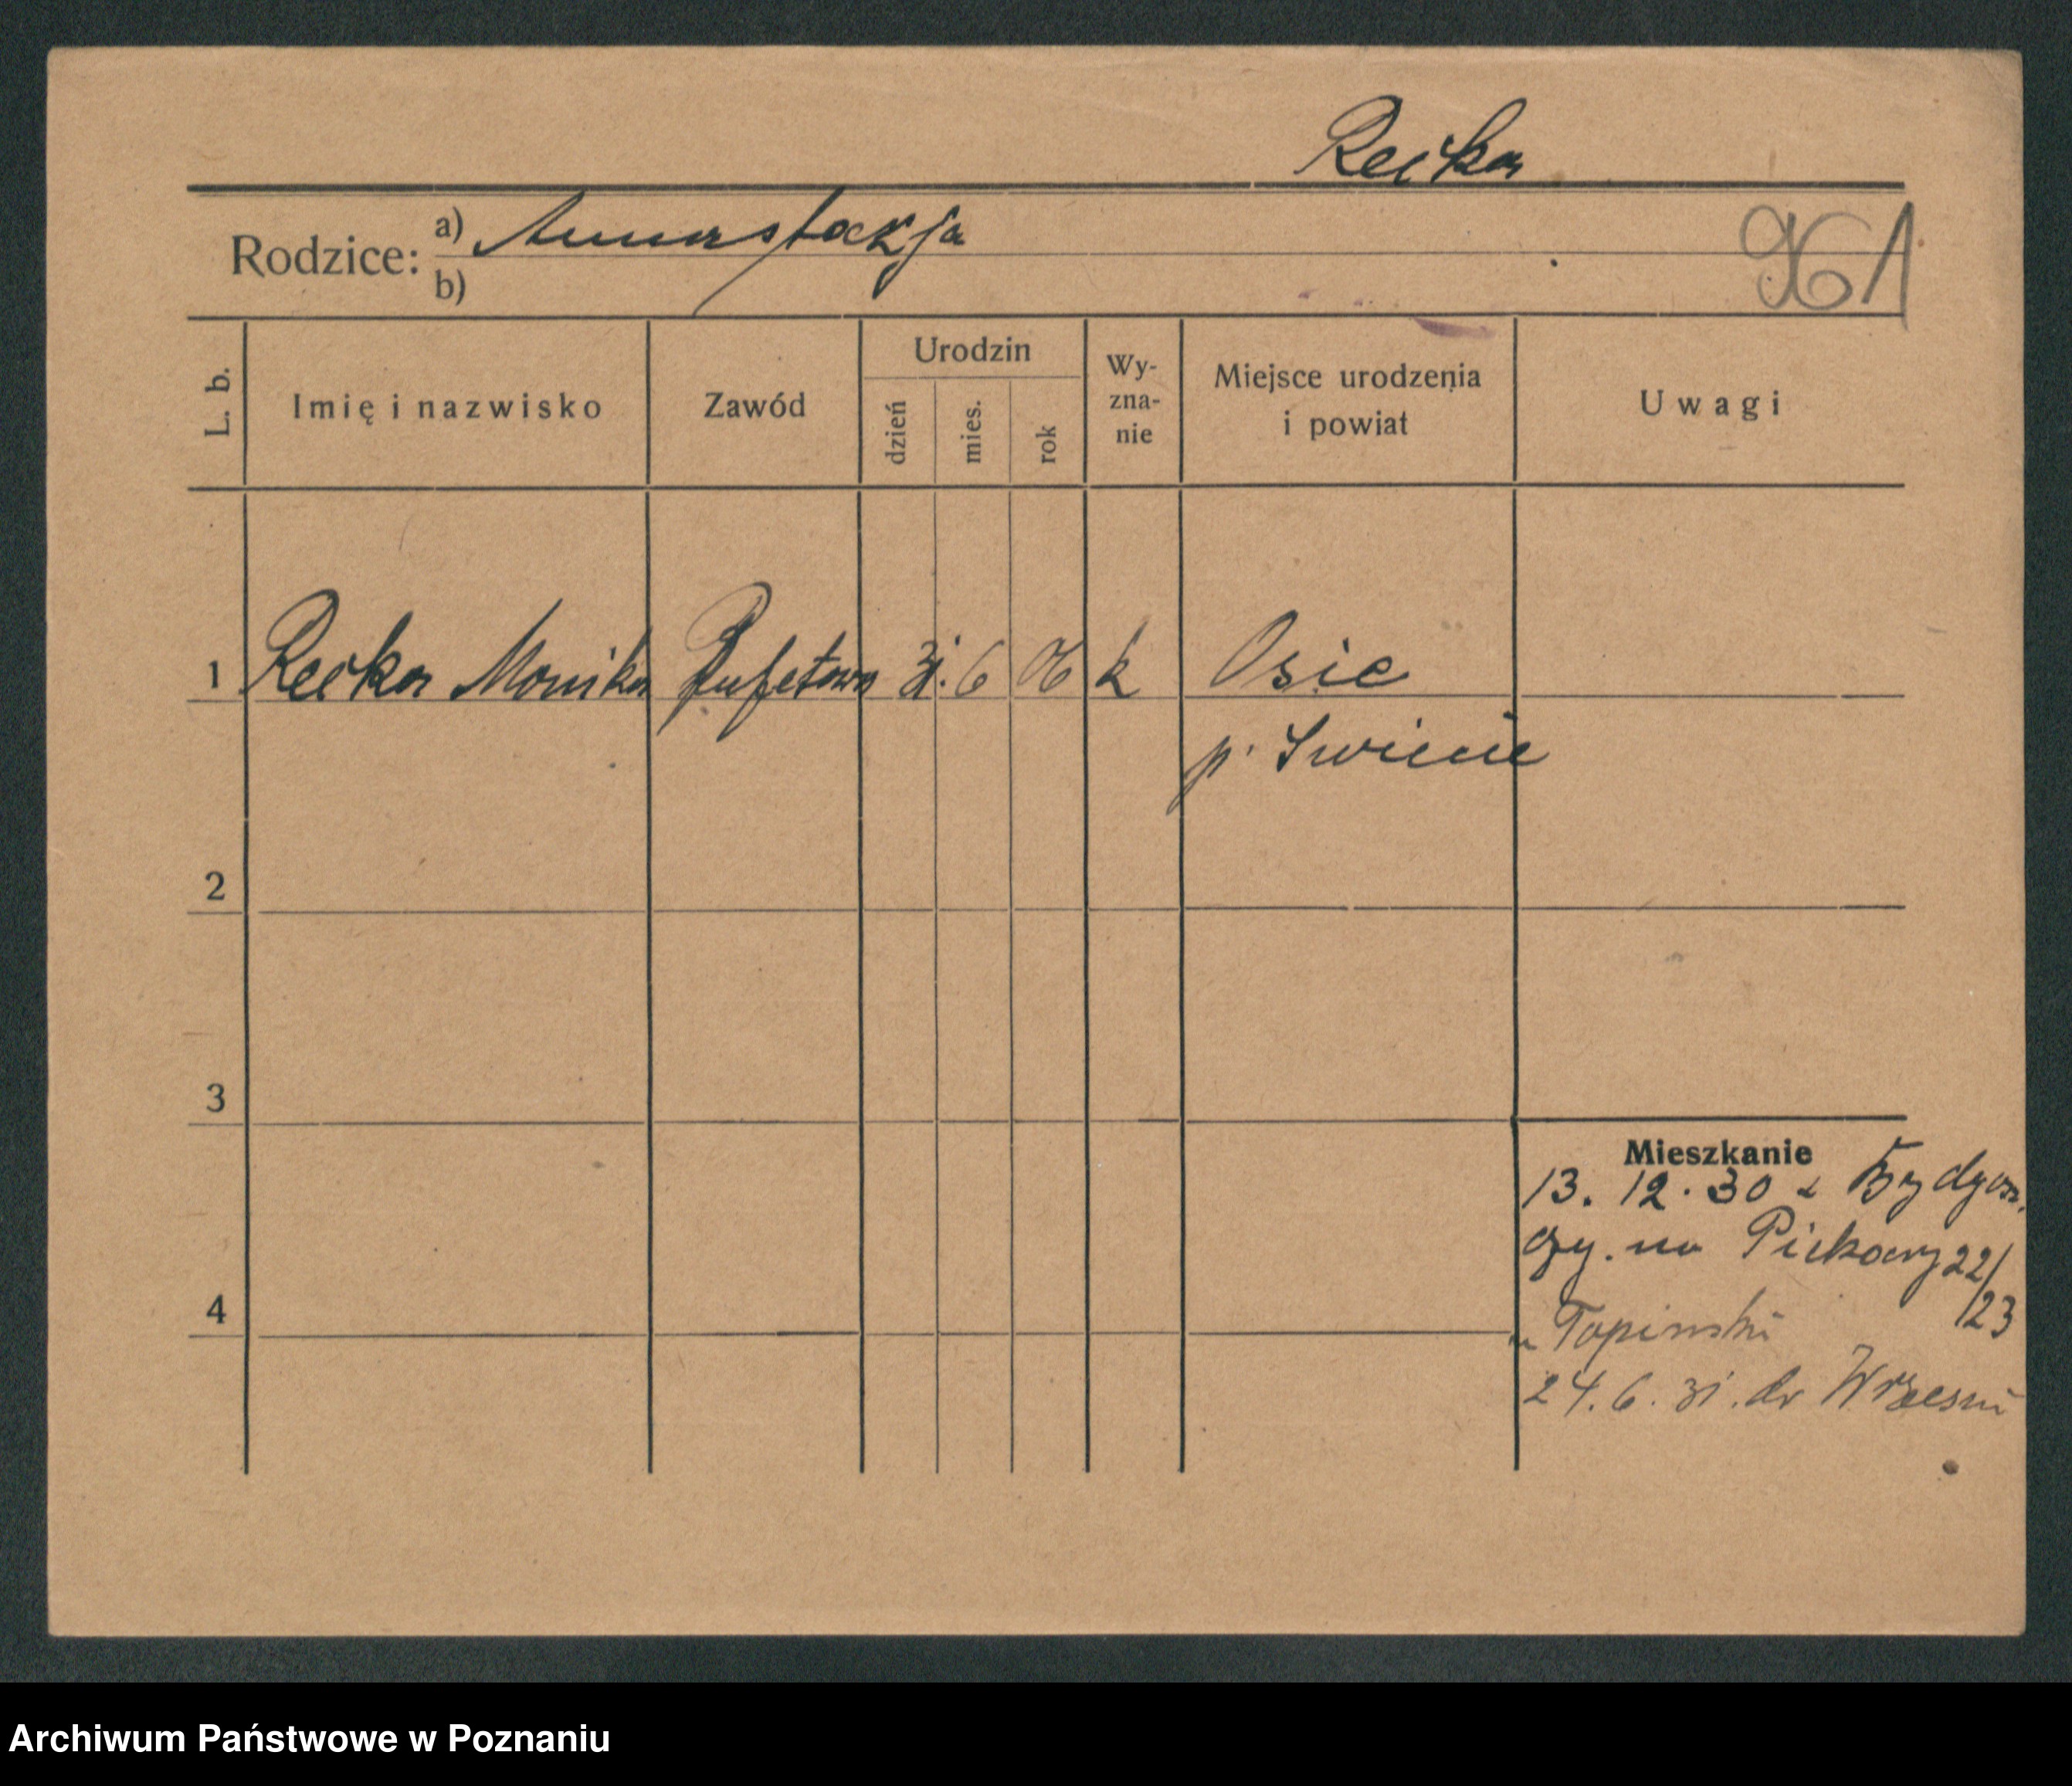 Recka
Rodzice: a) Anastazja
b)
961
L. b. Imię i nazwisko Zawód Urodzin dzień mies. rok Wy-zna-nie Miejsce urodzenia i powiat Uwagi
1 Recka Monika Bufetowa 3. 6 06 k Osie
p. Swiecie
2
3
Mieszkanie
13. 12. 30 z Bydgosz.
czy. na Piekary 22/
/23
4
u Tapinski
24. 6. 31. do Wrzesni
Archiwum Państwowe w Poznaniu